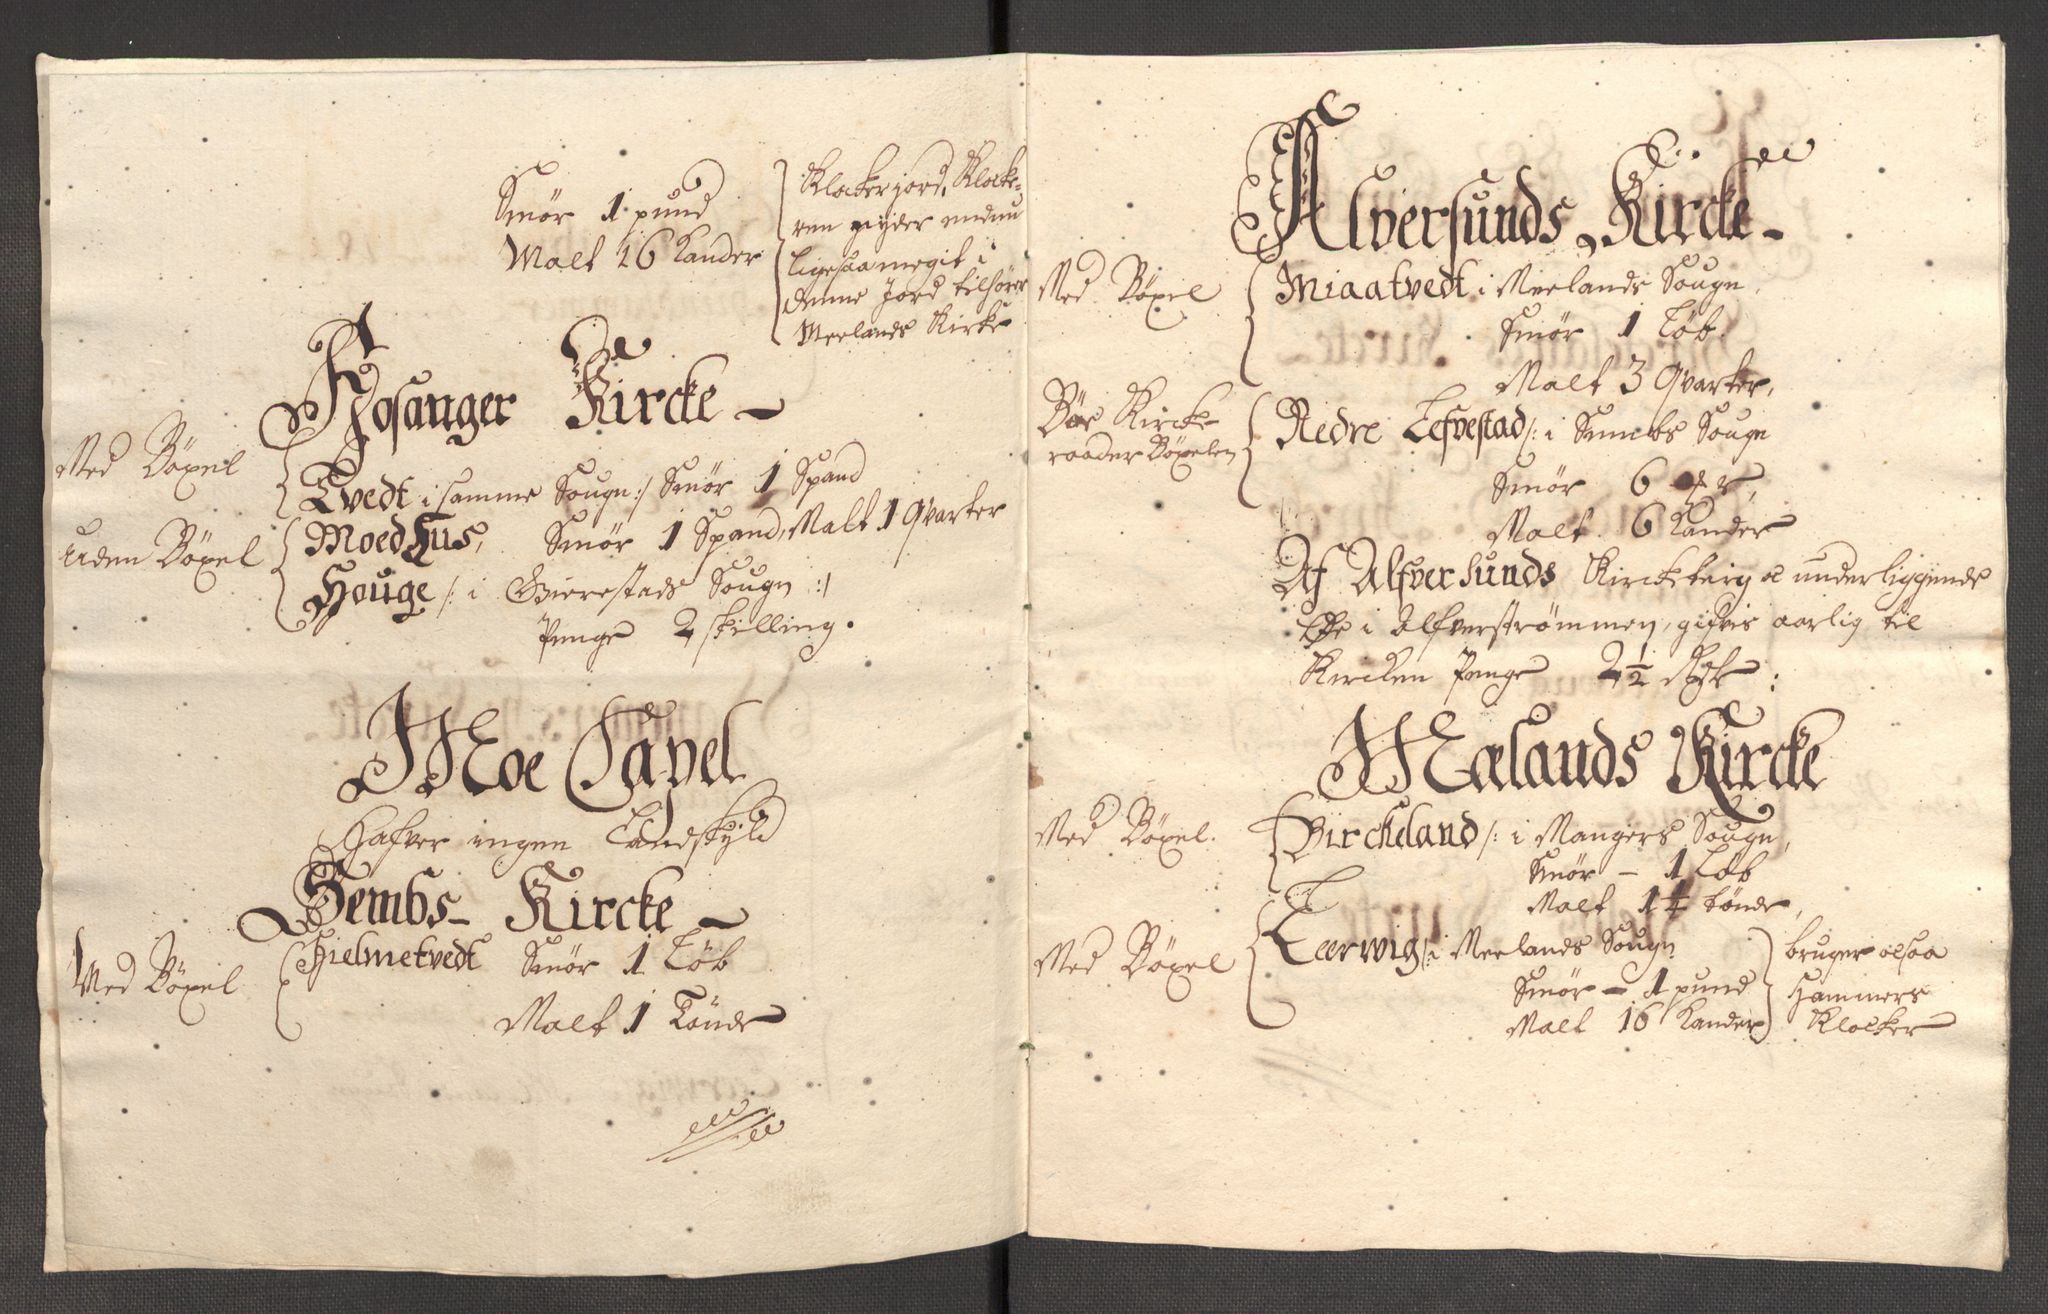 Smør 1 pund
Malt 16 Kander
Klockerjord, Klocke-
ren nyder endnu
ligesaa megit i
denne Jord tilhører
Meelands Kircke
Hosanger Kircke
Med Böxel
Tvedt i samme Sougn :/ Smør 1 Spand
uden Böxel
Moedhus, Smør 1 Spand, Malt 1 Qvarter
Houge /: i Gierestads Sougn :/
Penge 2 skilling.
Moe Capel
Hafver ingen Landskyld
Sembs Kircke
Med Böxel
Hielmetvedt Smør 1 Løb
Malt 1 Tønde
Alversunds Kircke
Med Böxel
Miaatvedt i Meelands Sougn,
Smør 1 Løb.
Malt 3 Qvarter,
Kircke-
raader Böxelen
Nedre Lefvestad /: i Sembs Sougn
Smør 6
Malt 6 Kander
Af Alfversunds Kirckeberg oc underliggende
i Alfverstrømmen, gifvis aarlig til
Kircken Penge 2½
Mælands Kircke
Med Böxel.
Birckeland /: i Mangers Sougn,
Smør - 1 Løb
Malt 1¼ tønde,
Med Böxel
Lerwig /: i Meelands Sougn
Smør - 1 pund
Malt 16 Kander
bruger ocsaa
Hammers
Klocker